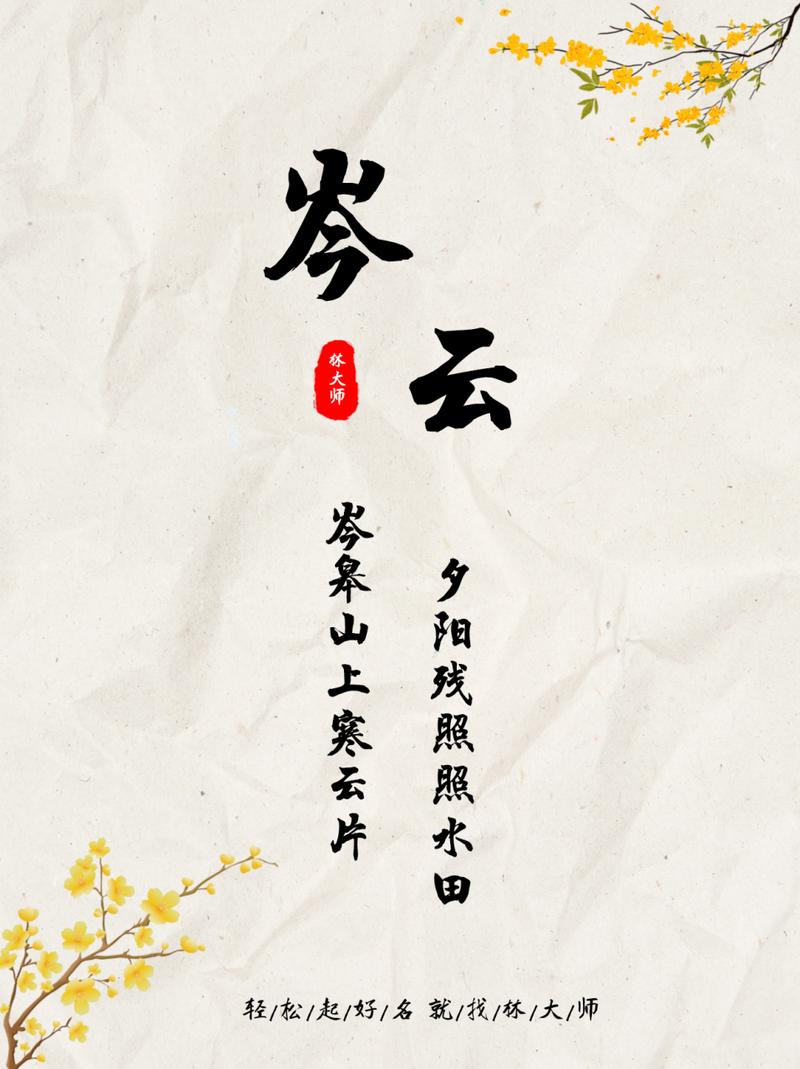 岑云
林大师
岑皋山上寒云片
夕阳残照照水田
轻/松/起/好/名 就/找/林/大/师